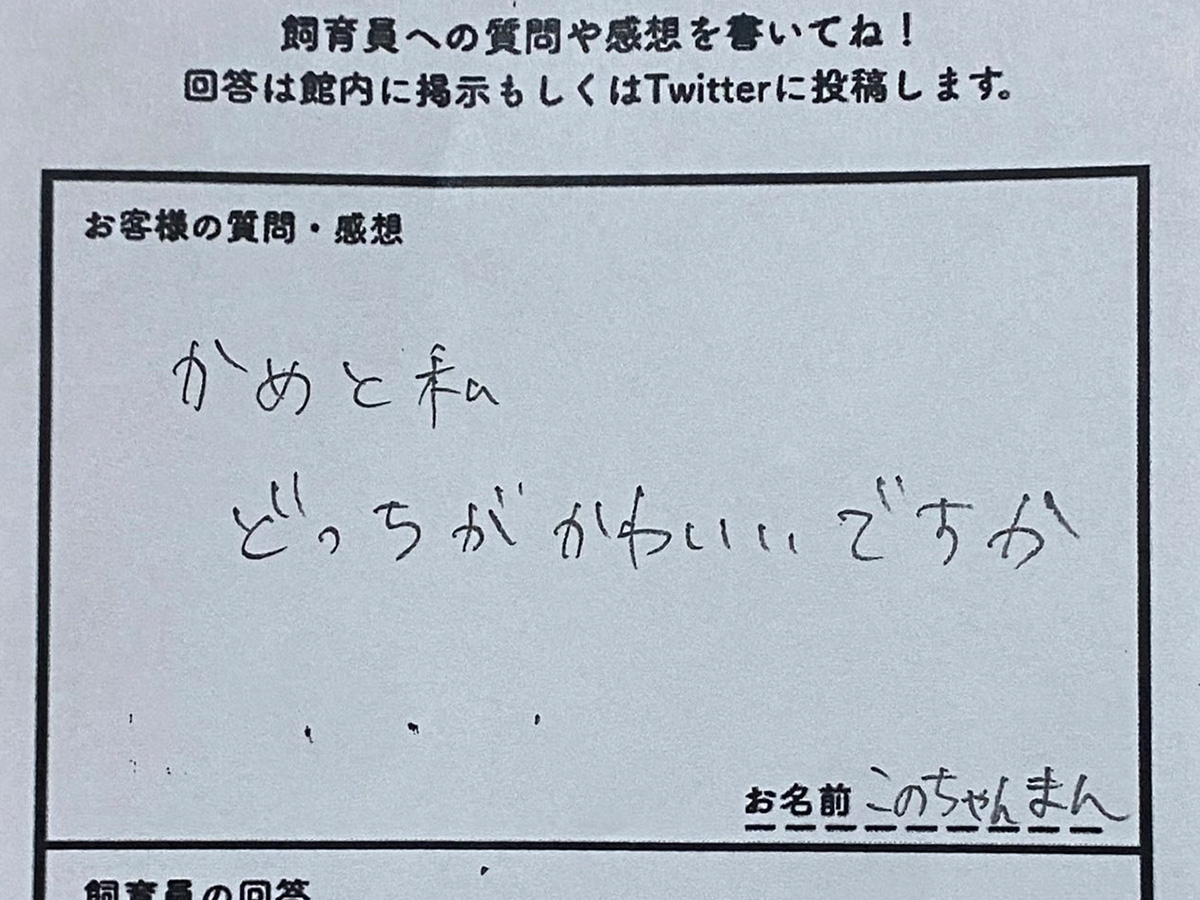 飼育員への質問や感想を書いてね！
回答は館内に掲示もしくはTwitterに投稿します。
お客様の質問・感想
かめと私
どっちがかわいいですか
お名前 このちゃんまん
飼育員の回答